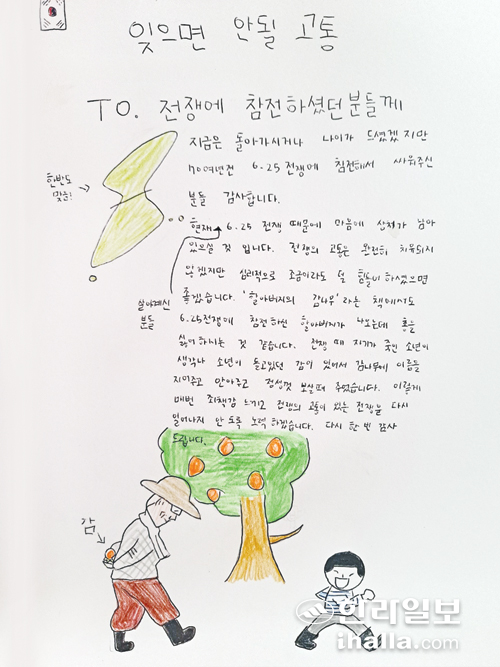 잊으면 안될 고통
TO. 전쟁에 참전하셨던분들께
지금은 돌아가시거나 나이가 드셨겠지만
70여년전 6.25 전쟁에 참전해서 싸워주신
분들 감사합니다.
한반도
맞음!
현재 6.25 전쟁 때문에 마음에 상처가 남아
있으실 것 입니다. 전쟁의 고통은 완전히 치유되지
않겠지만 심리적으로 조금이라도 덜 힘들어 하셨으면
좋겠습니다. '할아버지의 감나무' 라는 책에서도
살아계신
분들
6.25전쟁에 참전하신 할아버지가 나오는데 총을
싫어하시는 것 같습니다. 전쟁 때 자기가 죽인 소년이
생각나 소년이 들고있던 감이 있어서 감나무에 이름을
지어주고 안아주고 정성껏 보살펴 주었습니다. 이렇게
매번 죄책감 느끼고 전쟁의 고통이 있는 전쟁을 다시
일어나지 안 도록 노력 하겠습니다. 다시 한 번 감사
드립니다.
감
한라일보
ihalla.com